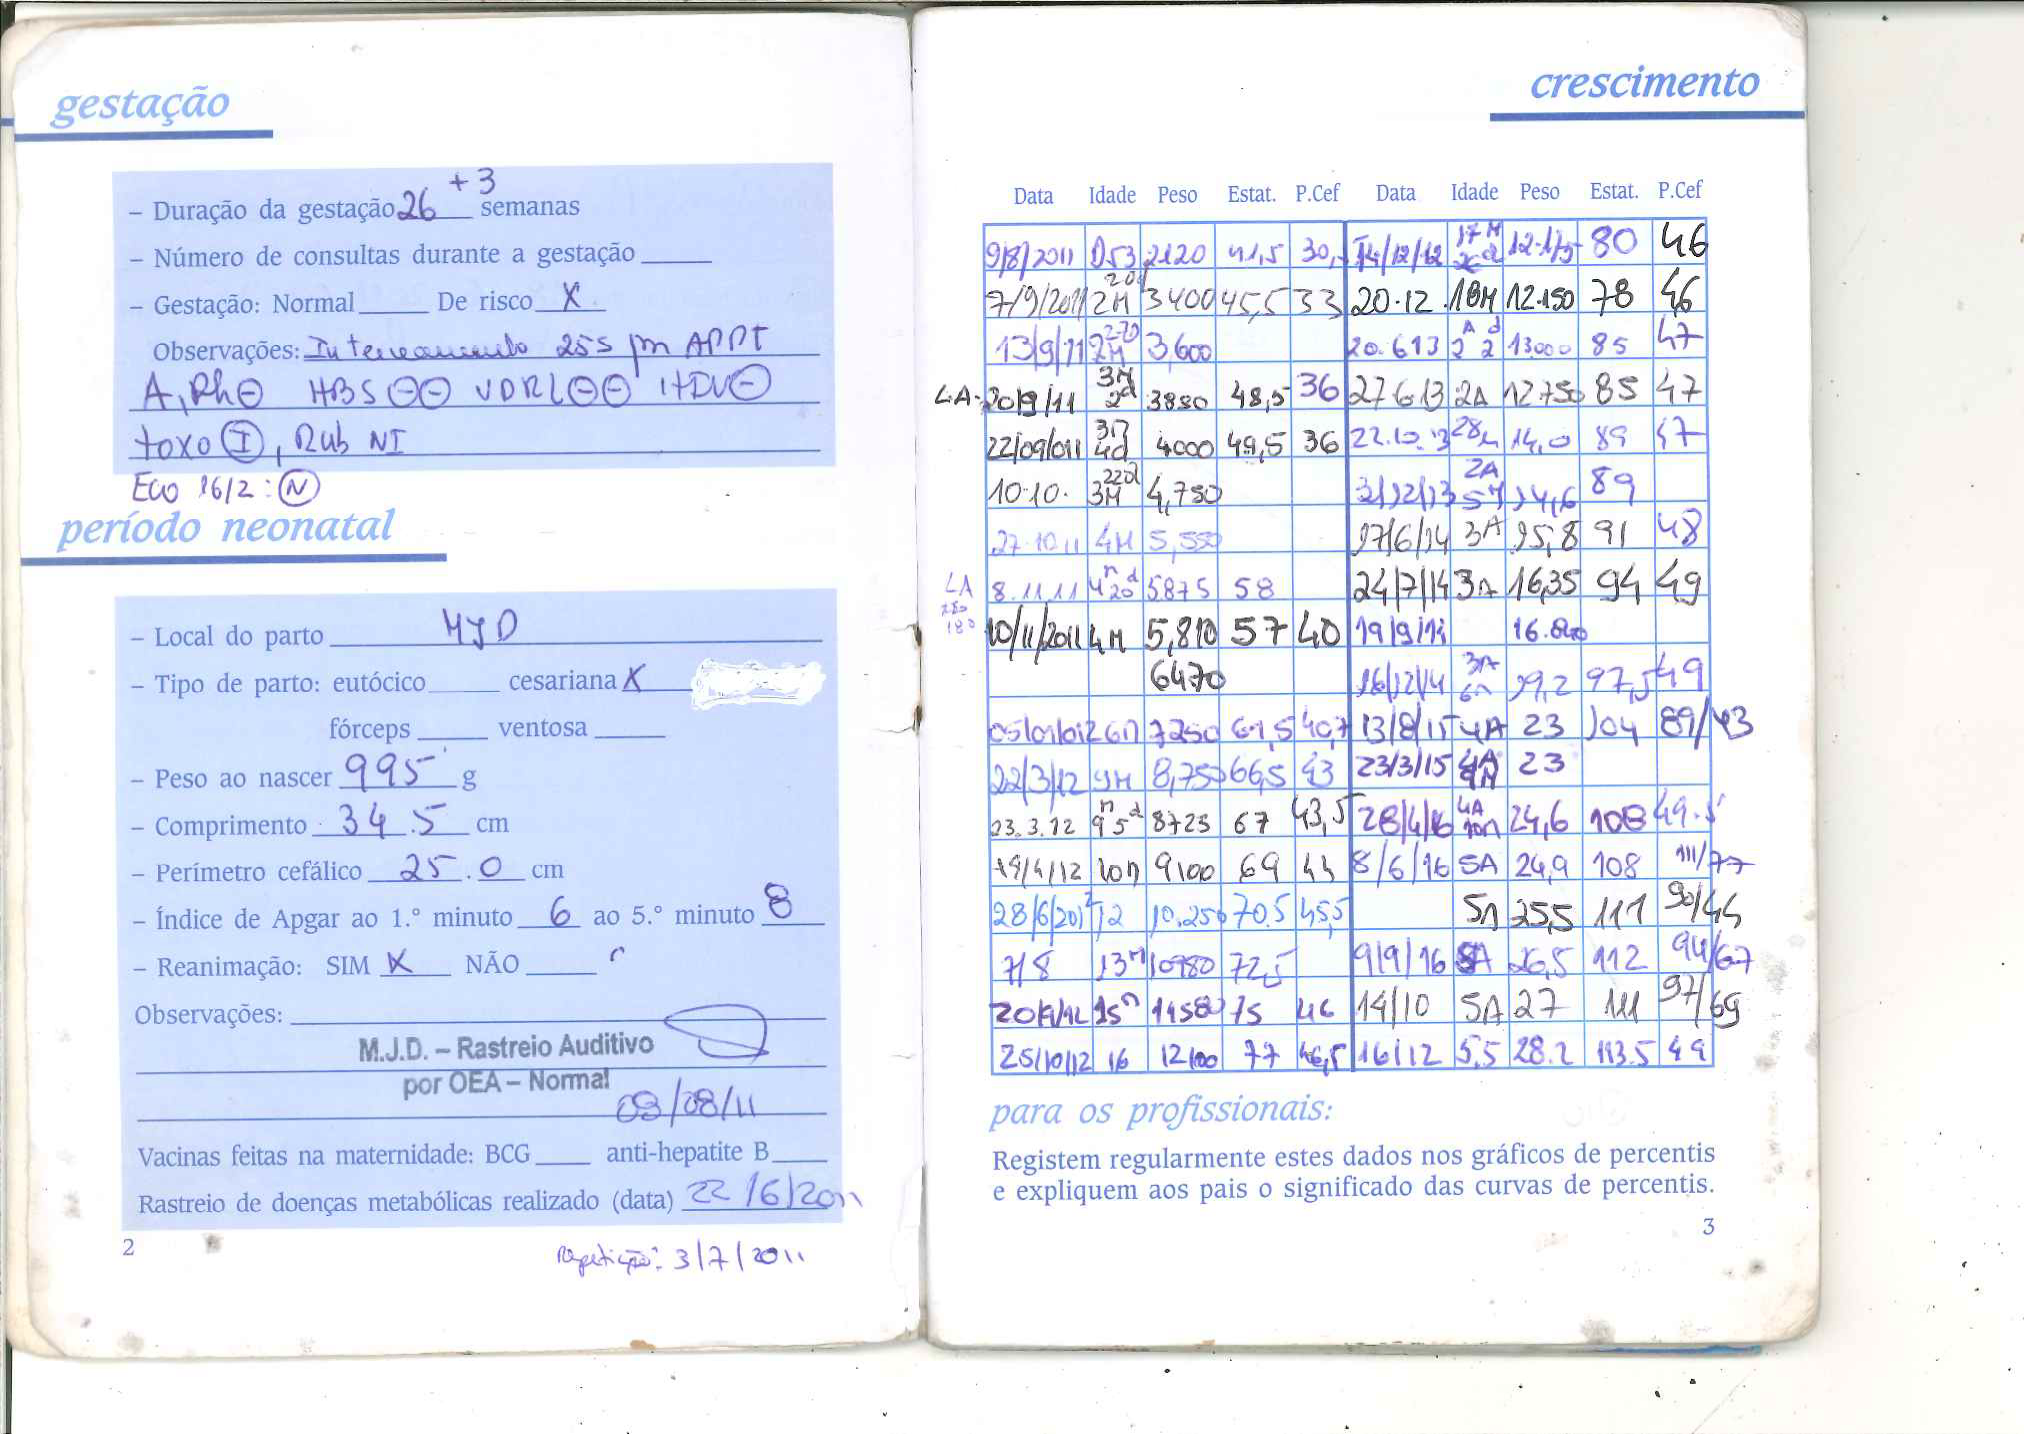 gestação
– Duração da gestação 26 +3 semanas
– Número de consultas durante a gestação
– Gestação: Normal De risco X
Observações: Internamento 25s por APPT
A, Rh⊖ HBS ⊖⊖ VDRL ⊖⊖ HIV ⊖
toxo I, Rub NI
Eco 16/2: N
período neonatal
– Local do parto MJD
– Tipo de parto: eutócico cesariana X
fórceps ventosa
– Peso ao nascer 995 g
– Comprimento 34.5 cm
– Perímetro cefálico 25.0 cm
– Índice de Apgar ao 1.° minuto 6 ao 5.° minuto 8
– Reanimação: SIM X NÃO
Observações:
M.J.D. – Rastreio Auditivo
por OEA – Normal
03/08/11
Vacinas feitas na maternidade: BCG anti-hepatite B
Rastreio de doenças metabólicas realizado (data) 22/6/2011
2
Repetição: 3/7/2011
crescimento
Data Idade Peso Estat. P.Cef Data Idade Peso Estat. P.Cef
9/8/2011 D53 2120 41,5 30, 14/12/12 17M 12.175 80 46
7/9/2011 2M 20d 3400 45,5 33 20.12. 18M 12.150 78 46
13/9/11 2M 3,600 20.6 13 2A 2d 13000 85 47
LA 20/9/11 3M 2d 3880 48,5 36 27 6 13 2A 12750 85 47
22/09/011 3M 4d 4000 49,5 36 22.10.13 28M 14,0 89 47
10.10. 3M 22d 4,750 2A 5M 14,6 89
27.10.11 4M 5,550 17/6/14 3A 15,8 91 48
LA 8.11.11 4M 20d 5875 58 24/7/14 3A 16,35 94 49
180
10/11/2011 4M 5,810 57 40 19/9/14 16.840
6470 16/12/14 3A 6M 19,2 97,5 49
05/01/012 6M 7250 61,5 40,7 13/8/15 4A 23 104 89/43
22/3/12 9M 8,750 66,5 43 23/3/15 4A 9M 23
23.3.12 9M 5d 8725 67 43,5 28/4/16 4A 10M 24,6 108 49.5
19/4/12 10M 9100 69 44 8/6/16 5A 24,9 108 111/77
28/6/2012 12 10.250 70.5 45,5 5A 25,5 111 90/45
7/8 13M 10980 72,5 9/9/16 5A 26,5 112 94/67
20/9/12 15M 11580 75 46 14/10 5A 27 111 97/69
25/10/12 16 12100 77 46,5 16/12 5,5 28.2 113.5 49
para os profissionais:
Registem regularmente estes dados nos gráficos de percentis
e expliquem aos pais o significado das curvas de percentis.
3